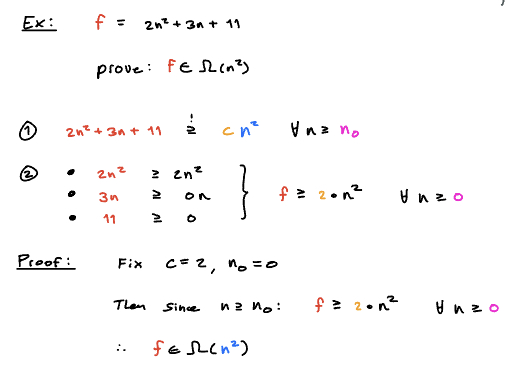 Ex: f = 2n² + 3n + 11
prove: f ∈ Ω(n²)
① 2n² + 3n + 11 ≥! c n² ∀ n ≥ n₀
② • 2n² ≥ 2n²
• 3n ≥ 0n } f ≥ 2 • n² ∀ n ≥ 0
• 11 ≥ 0
Proof: Fix c = 2, n₀ = 0
Then since n ≥ n₀: f ≥ 2 • n² ∀ n ≥ 0
∴ f ∈ Ω(n²)